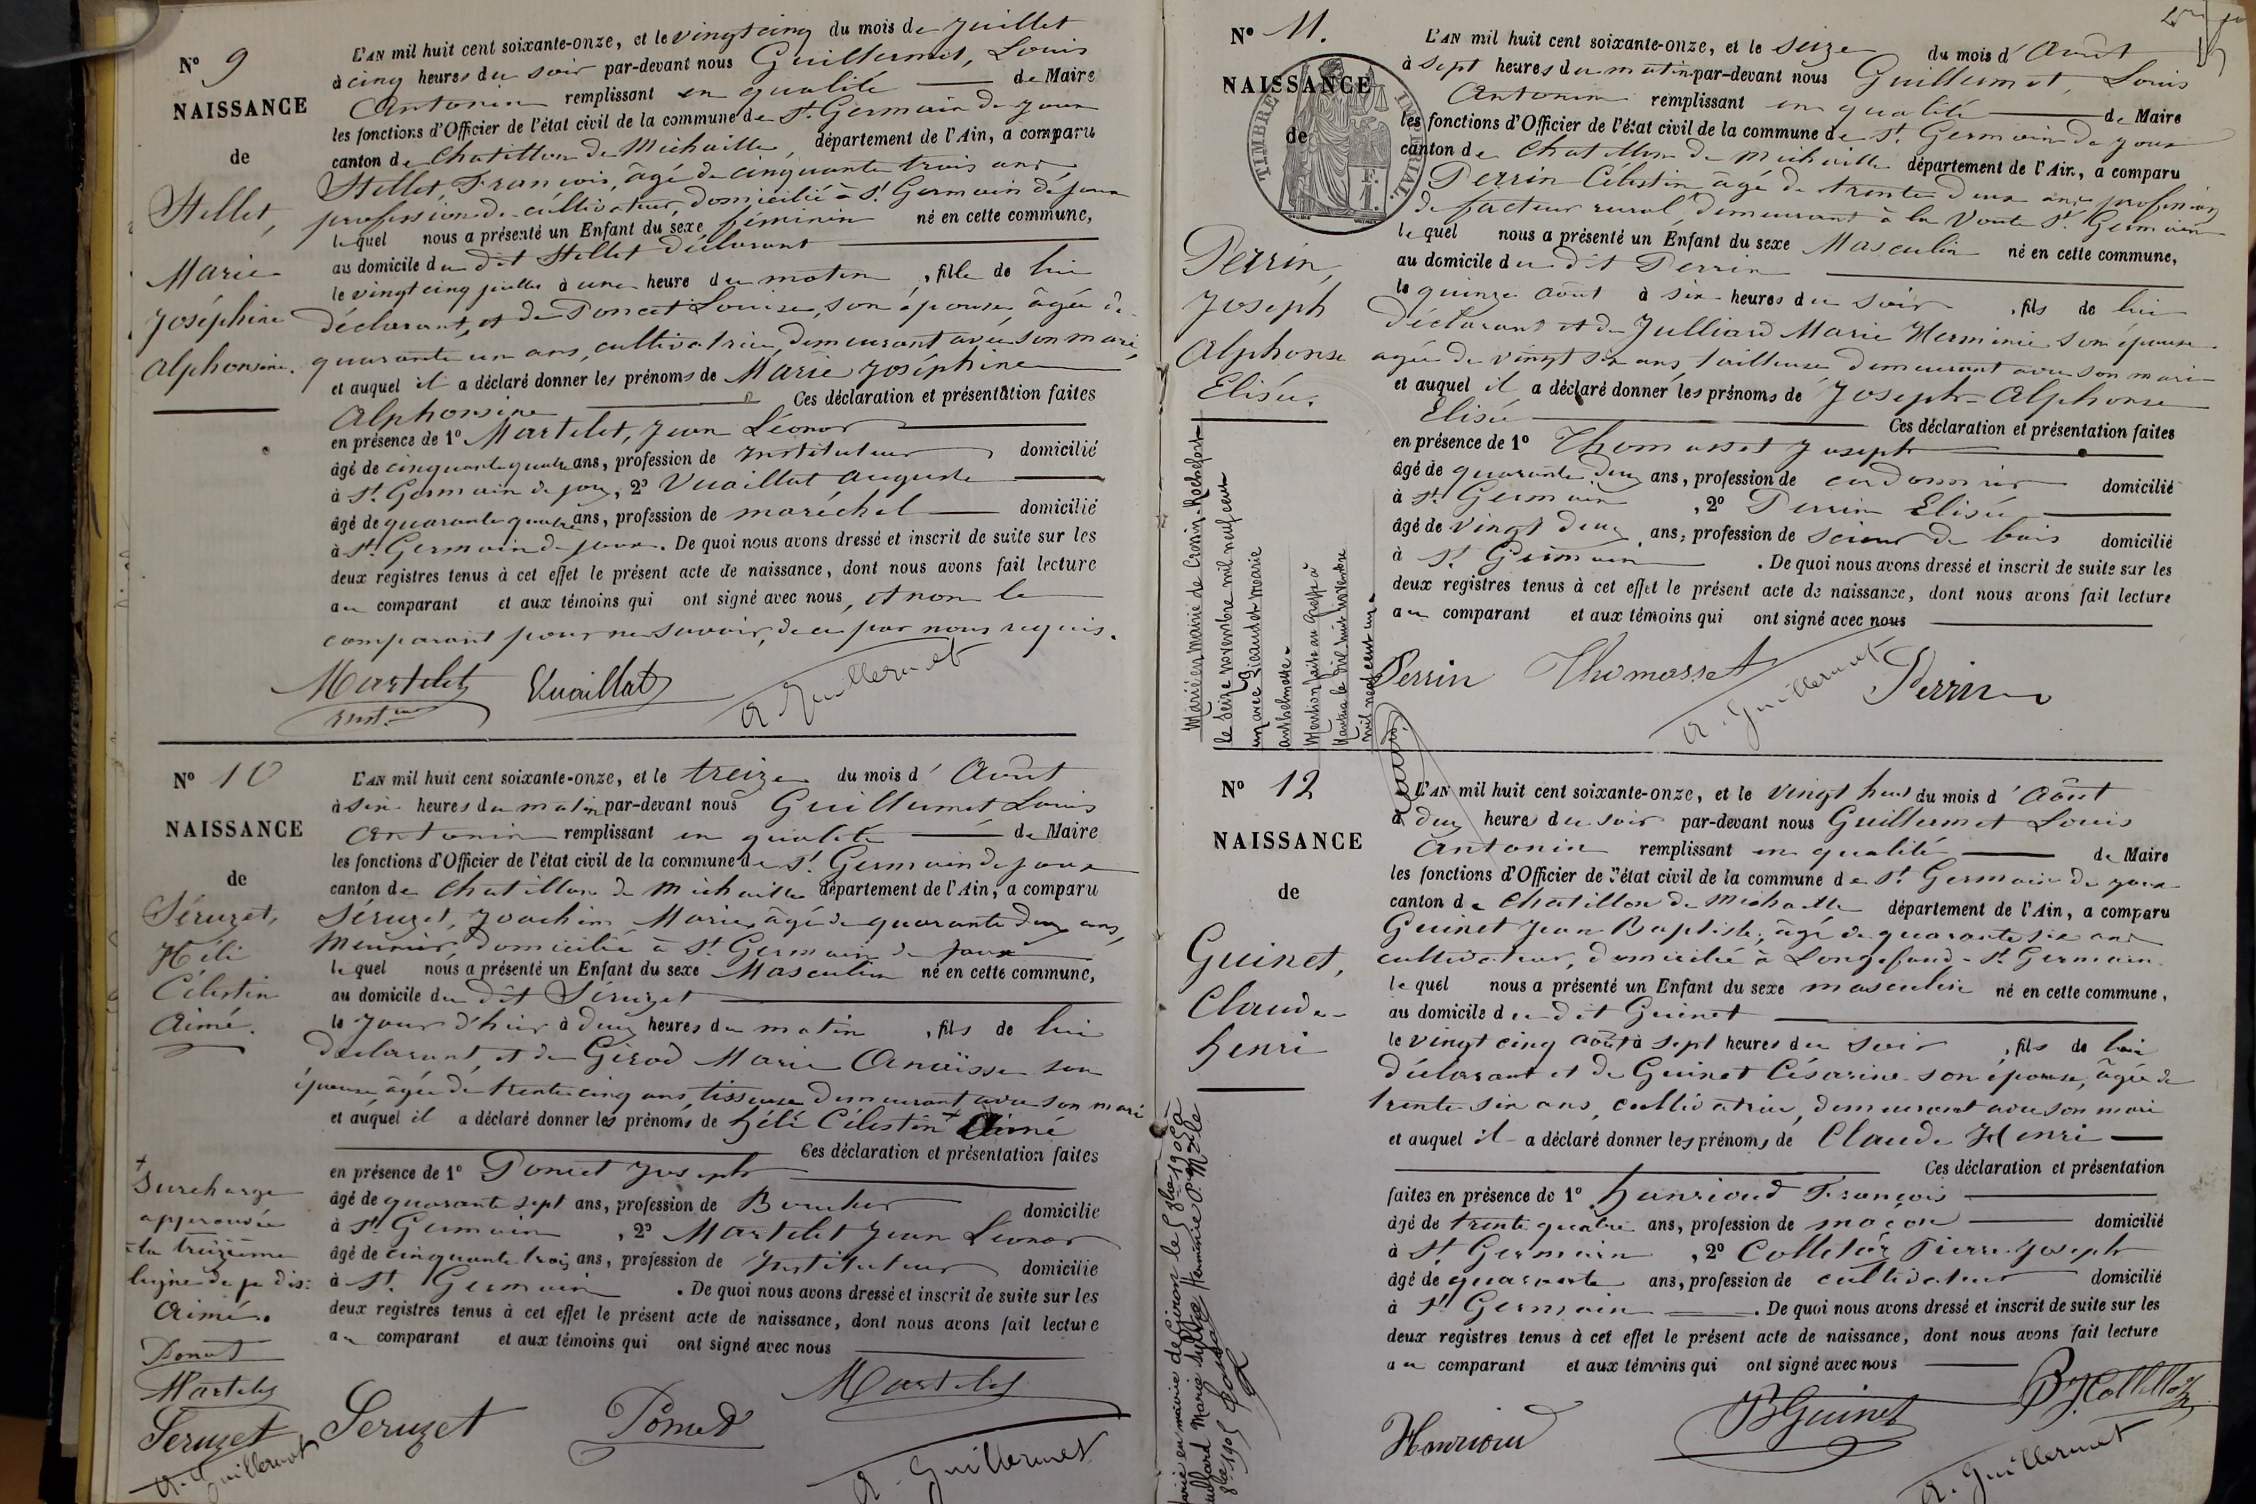 N° 9
NAISSANCE
de
Stellet,
Marie
Joséphine
Alphonsine.
L'AN mil huit cent soixante-onze, et le vingt cinq du mois de Juillet
à cinq heures du soir par-devant nous Guillermet, Louis
Antonin remplissant en qualité de Maire
les fonctions d'Officier de l'état civil de la commune de St Germain de Joux
canton de Chatillon de Michaille, département de l'Ain, a comparu
Stellet, François, âgé de cinquante trois ans,
profession de cultivateur, domicilié à St Germain de Joux
lequel nous a présenté un Enfant du sexe féminin né en cette commune,
au domicile du dit Stellet déclarant
le vingt cinq juillet à une heure du matin, fille de lui
déclarant, et de Poncet Louise, son épouse, âgée de
quarante un ans, cultivatrice, demeurant avec son mari,
et auquel il a déclaré donner les prénoms de Marie Joséphine
Alphonsine Ces déclaration et présentation faites
en présence de 1° Martelet, Jean Léonor
âgé de cinquante quatre ans, profession de Instituteur domicilié
à St Germain de Joux, 2° Vuaillat Auguste
âgé de quarante quatre ans, profession de maréchal domicilié
à St Germain de Joux. De quoi nous avons dressé et inscrit de suite sur les
deux registres tenus à cet effet le présent acte de naissance, dont nous avons fait lecture
au comparant et aux témoins qui ont signé avec nous, et non le
comparant pour ne savoir, de ce par nous requis.
Martelet Vuaillat A. Guillermet
inst.eur
N° 10
NAISSANCE
de
Séruzet,
Héli
Célestin
Aimé.
L'AN mil huit cent soixante-onze, et le treize du mois d'Août
à six heures du matin par-devant nous Guillermet Louis
Antonin remplissant en qualité de Maire
les fonctions d'Officier de l'état civil de la commune de St Germain de Joux
canton de Chatillon de Michaille département de l'Ain, a comparu
Séruzet, Joachim Marie, âgé de quarante deux ans,
Meunier, domicilié à St Germain de Joux
lequel nous a présenté un Enfant du sexe Masculin né en cette commune,
au domicile du dit Séruzet
le jour d'hier à deux heures du matin, fils de lui
déclarant, et de Girod Marie Anaïsse son
épouse, âgée de trente cinq ans, tisseuse demeurant avec son mari
et auquel il a déclaré donner les prénoms de héli Célestin + Aimé
Ces déclaration et présentation faites
en présence de 1° Poncet Joseph
âgé de quarante sept ans, profession de Boucher domicilié
à St Germain, 2° Martelet Jean Léonor
âgé de cinquante trois ans, profession de Instituteur domicilié
à St Germain. De quoi nous avons dressé et inscrit de suite sur les
deux registres tenus à cet effet le présent acte de naissance, dont nous avons fait lecture
au comparant et aux témoins qui ont signé avec nous
+ Surcharge
approuvée
à la treizième
ligne
Aimé.
Poncet
Martelet
Seruzet
A. Guillermet
Martelet
Seruzet Poncet
A. Guillermet
N° 11.
NAISSANCE
de
TIMBRE IMPÉRIAL
Perrin,
Joseph
Alphonse
Elisée.
L'AN mil huit cent soixante-onze, et le seize du mois d'Août
à sept heures du matin par-devant nous Guillermet, Louis
Antonin remplissant en qualité de Maire
les fonctions d'Officier de l'état civil de la commune de St Germain de Joux
canton de Chatillon de Michaille département de l'Ain, a comparu
Perrin Célestin âgé de trente deux ans profession
de facteur rural, demeurant à la Voute St Germain
lequel nous a présenté un Enfant du sexe Masculin né en cette commune,
au domicile du dit Perrin
le quinze août à six heures du soir, fils de lui
déclarant et de Julliard Marie Herminie son épouse
agée de vingt six ans, tailleuse demeurant avec son mari
et auquel il a déclaré donner les prénoms de Joseph-Alphonse
Elisée Ces déclaration et présentation faites
en présence de 1° Thomasset Joseph
âgé de quarante deux ans, profession de cordonnier domicilié
à St Germain, 2° Perrin Elisée
âgé de vingt deux ans, profession de scieur de bois domicilié
à St Germain. De quoi nous avons dressé et inscrit de suite sur les
deux registres tenus à cet effet le présent acte de naissance, dont nous avons fait lecture
au comparant et aux témoins qui ont signé avec nous
Perrin Thomasset A. Guillermet Perrin
Marié en mairie de Rochefort
le seize novembre mil neuf cent
un avec Marie
Mention faite au Greffe à
Nantua le dix huit novembre
mil neuf cent un.
N° 12
NAISSANCE
de
Guinet,
Claude
henri
L'AN mil huit cent soixante-onze, et le vingt huit du mois d'Août
à deux heures du soir par-devant nous Guillermet Louis
Antonin remplissant en qualité de Maire
les fonctions d'Officier de l'état civil de la commune de St Germain de Joux
canton de Chatillon de Michaille département de l'Ain, a comparu
Guinet Jean Baptiste, âgé de quarante six ans
cultivateur, domicilié à Longefand-St Germain
lequel nous a présenté un Enfant du sexe masculin né en cette commune,
au domicile du dit Guinet
le vingt cinq août à sept heures du soir, fils de lui
déclarant et de Guinet Césarine son épouse, âgée de
trente six ans, cultivatrice, demeurant avec son mari
et auquel il a déclaré donner les prénoms de Claude Henri
Ces déclaration et présentation
faites en présence de 1° henrioud François
âgé de trente quatre ans, profession de maçon domicilié
à St Germain, 2° Colletaz Pierre Joseph
âgé de quarante ans, profession de cultivateur domicilié
à St Germain. De quoi nous avons dressé et inscrit de suite sur les
deux registres tenus à cet effet le présent acte de naissance, dont nous avons fait lecture
au comparant et aux témoins qui ont signé avec nous
Henrioud JBGuinet PJColletaz
A. Guillermet
Marié en mairie de Giron le
Marie Herminie